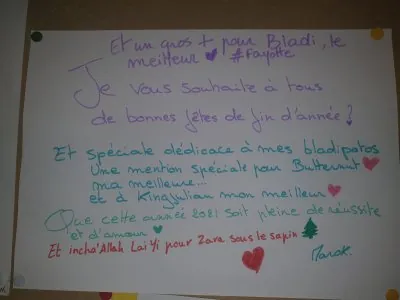 Et un gros + pour Bladi, le
meilleur #Fayotte
Je vous souhaite à tous
de bonnes fêtes de fin d'année !
Et spéciale dédicace à mes bladipotos
Une mention spéciale pour Butternut
ma meilleure...
et à Kingjulian mon meilleur
Que cette année 2021 soit pleine de réussite
et d'amour
Et incha'Allah Lai Yi pour Zara sous le sapin